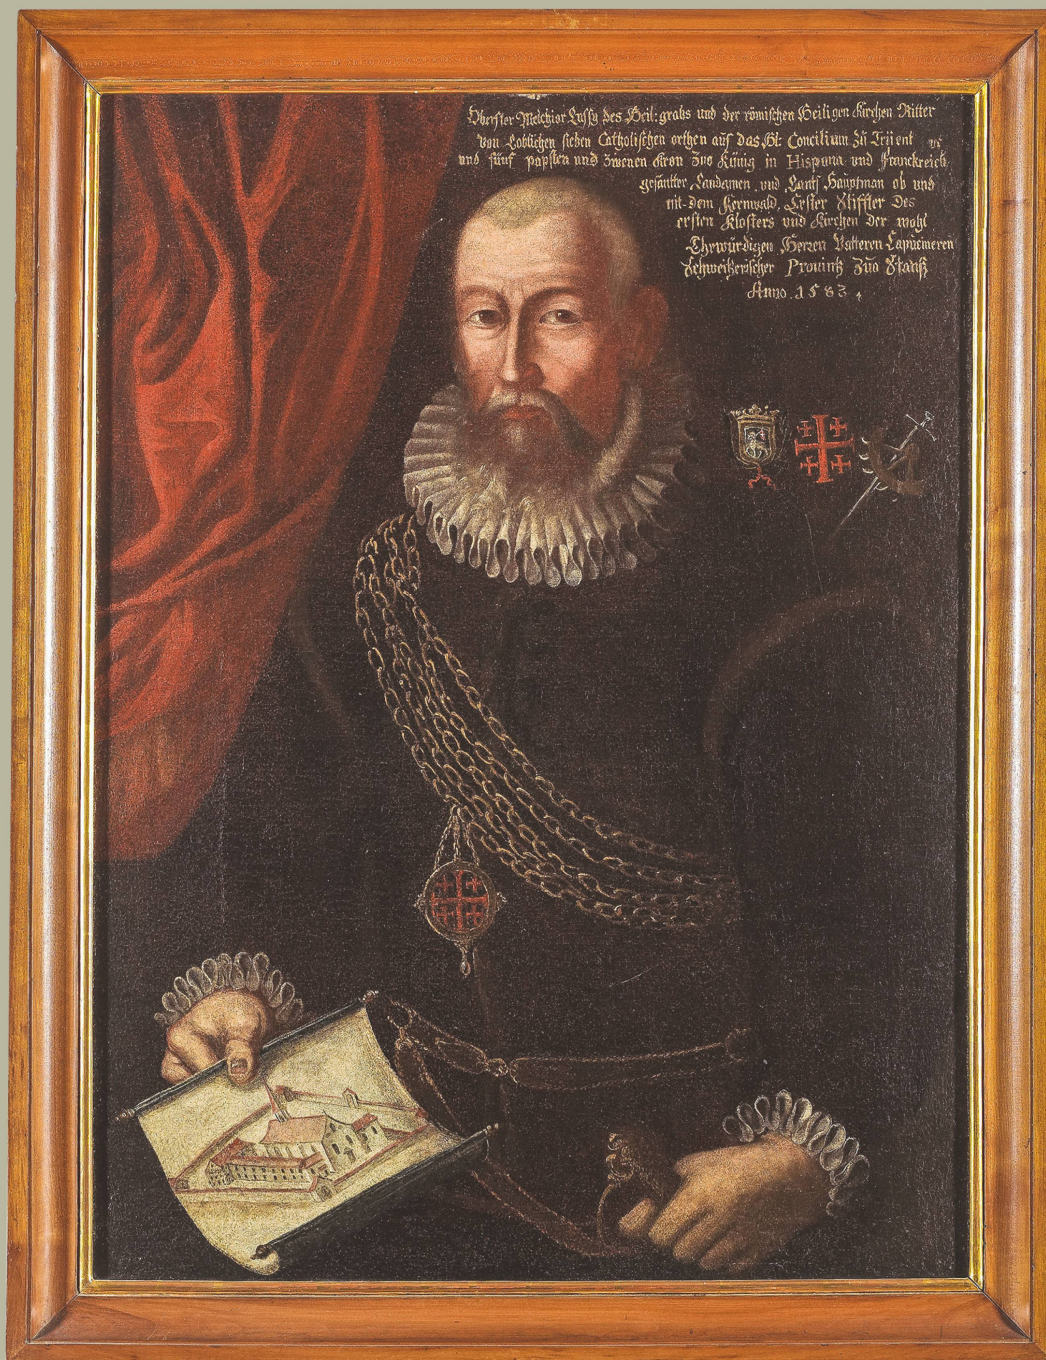 Oberster Melchior Lussy des Heil: grabs und der römischen Heiligen Kirchen Ritter
Von Loblichen sieben Catholischen orthen auf das Hl: Concilium zu Trient
und fünf papsten und zwenen Kron Zuo Künig in Hispana und Franckreich
gesantter Landamen und Lants Haüptman ob und
nit dem Kernwald, Erster Stiffter Des
ersten Klosters und Kirchen Der wohl
Ehrwürdigen Herren Vatteren Capucineren
Schweitzerischer Provintz Zuo Stanß
Anno. 1583.